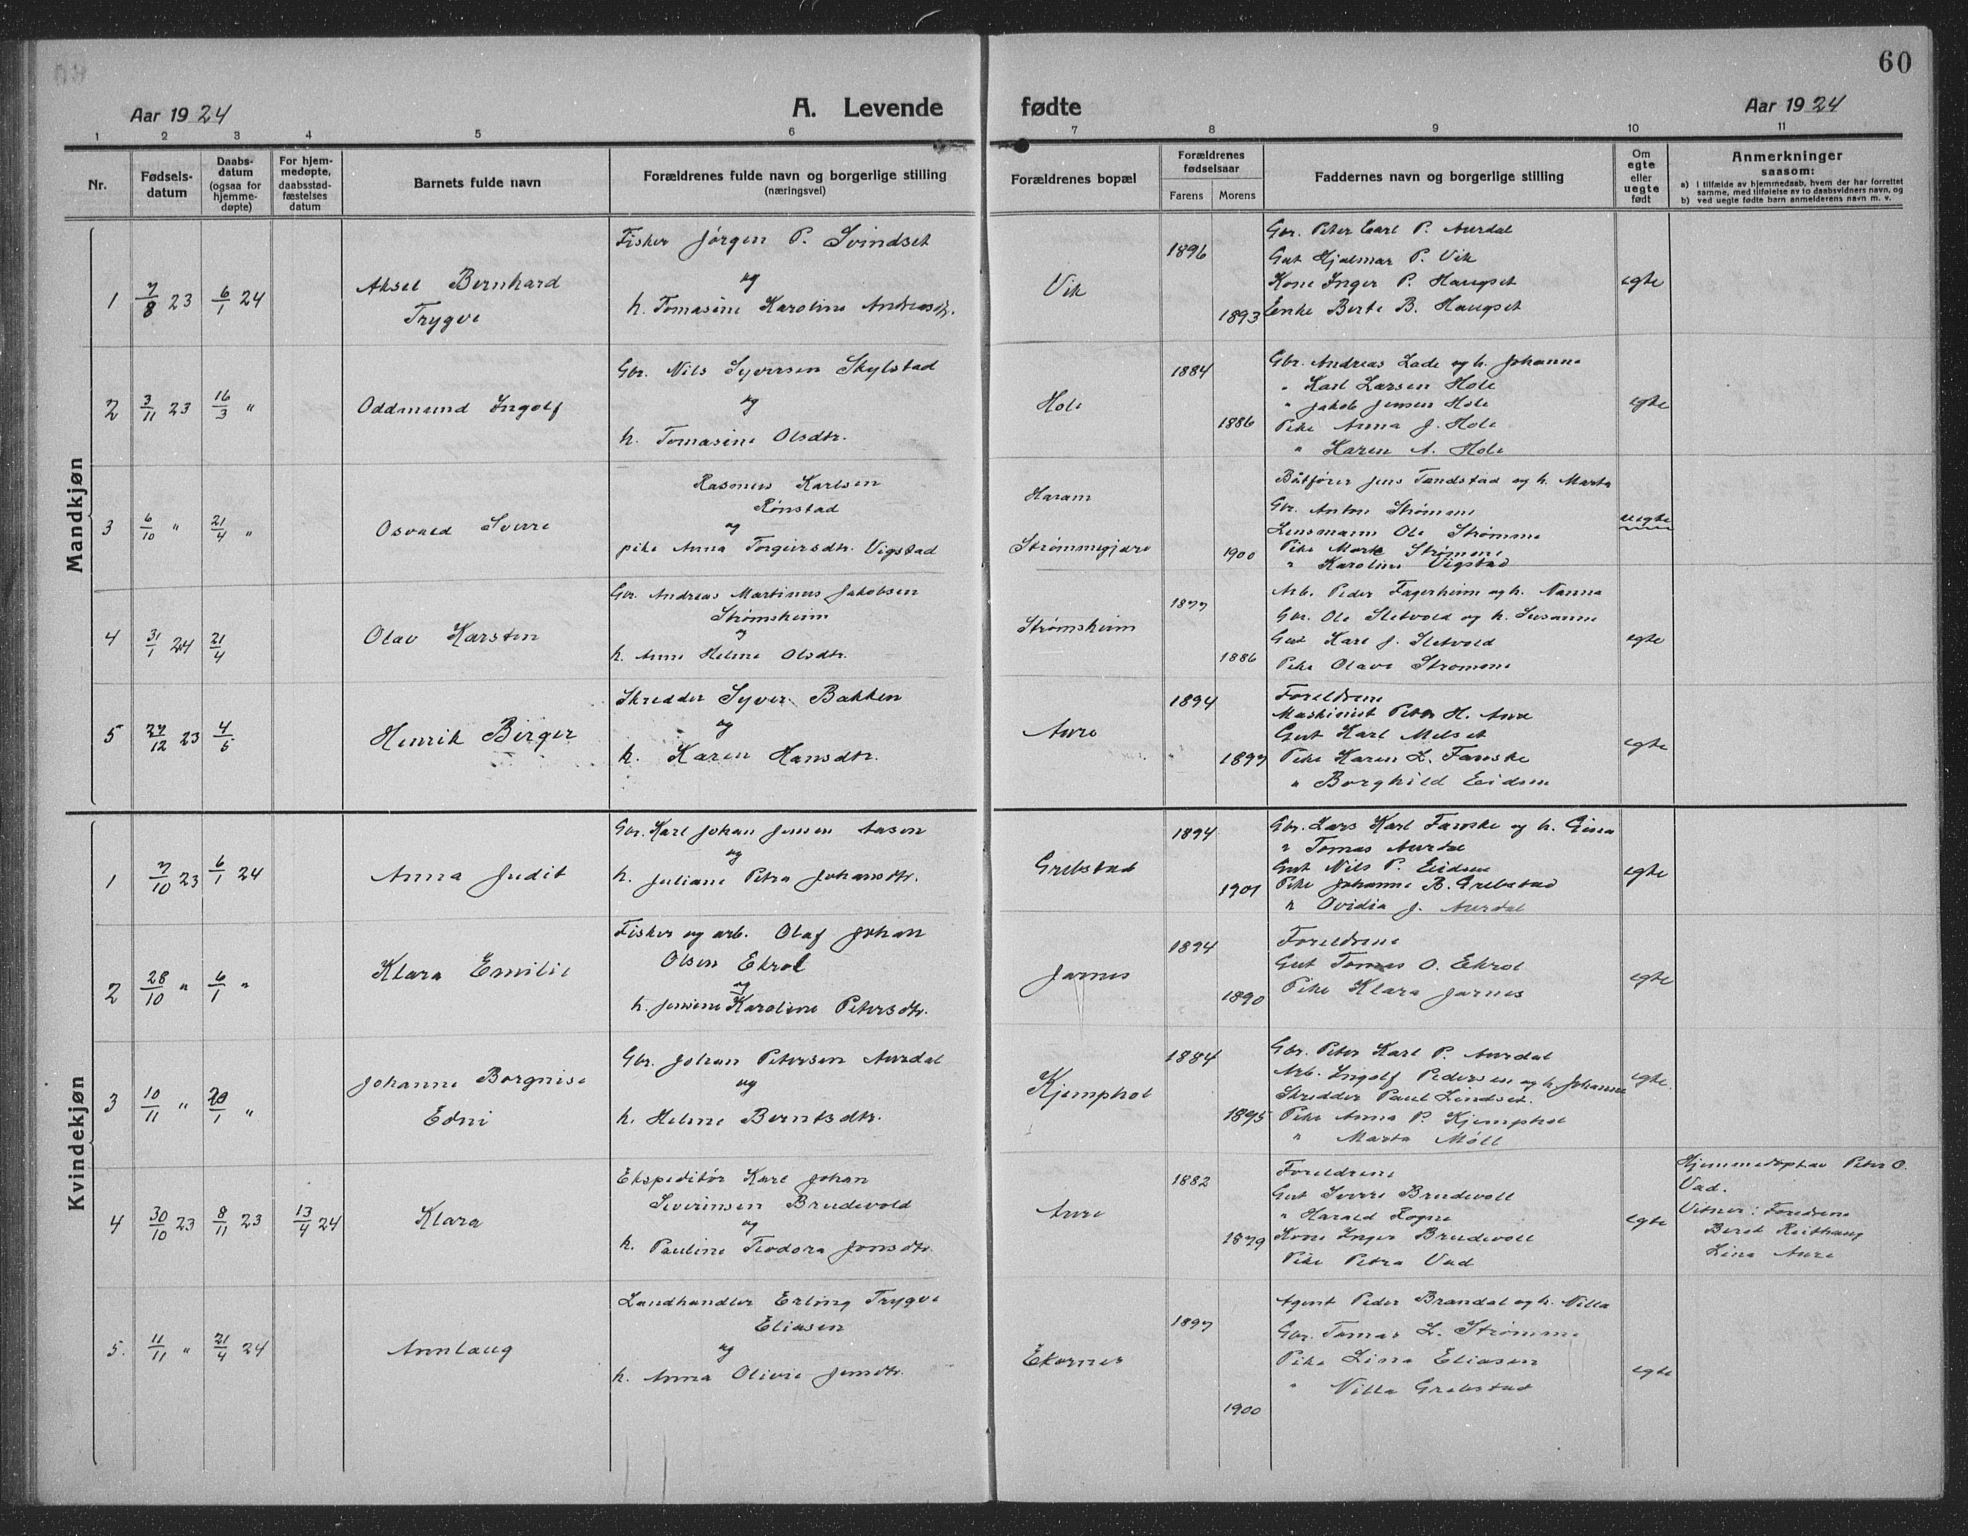 60
Aar 1924
A. Levende fødte
Aar 1924
1 2 3 4 5 6 7 8 9 10 11
Nr.
Fødsels-
datum
Daabs-
datum
(ogsaa for
hjemme-
døpte)
For hjem-
medøpte,
daabsstad-
fæstelses
datum
Barnets fulde navn
Forældrenes fulde navn og borgerlige stilling
(næringsvei)
Forældrenes bopæl
Forældrenes
fødselsaar
Farens Morens
Faddernes navn og borgerlige stilling
Om
egte
eller
uegte
født
Anmerkninger
saasom:
a) I tilfælde av hjemmedaab, hvem der har forrettet
samme, med tilføielse av to daabsvidners navn, og
b) ved uegte fødte barn anmelderens navn m. v.
Mandkjøn
1 7/8 23 6/1 24
Aksel Bernhard
Trygve
Fisker Jørgen P. Svindset
og
h. Tomasine Karoline Andreasdtr.
Vik
1896
1893
Gbr. Peter Carl P. Aurdal
Gut Hjalmar P. Vik
Kone Inger P. Haugset
Enke Berte B. Haugset
egte
2 3/11 23 16/3 "
Oddmund Ingolf
Gbr. Nils Syversen Skylstad
og
h. Tomasine Olsdtr.
Hole
1884
1886
Gbr. Andreas Lade og h. Johanne
" Karl Larsen Hole
" Jakob Jensen Hole
Pike Anna J. Hole
" Karen A. Hole
egte
3 6/10 " 21/4 "
Osvald Sverre
Rasmus Karlsen
Rønstad
og
pike Anna Torgersdtr. Vigstad
Haram
Strømmegjære
1900
Båtfører Jens Tandstad og h. Marta
Gbr. Anton Strømme
Lensmann Ole Strømme
Pike Marte Strømme
" Karoline Vigstad
uegte
4 31/1 24 21/4
Olav Karsten
Gbr. Andreas Martinus Jakobsen
Strømsheim
og
h. Anne Helene Olsdtr.
Strømsheim
1877
1886
Arb. Peder Fagerheim og h. Nanna
Gbr. Ole Sletvold og h. Susanne
Gut Karl J. Sletvold
Pike Olave Strømme
egte
5 27/12 23 4/5
Henrik Birger
Skredder Syver Bakken
og
h. Karen Hansdtr.
Aure
1894
1897
Foreldrene
Maskinist Peter H. Aure
Gut Karl Melset
Pike Karen L. Fauske
" Borghild Eidem
egte
Kvindekjøn
1 7/10 23 6/1 24
Anna Judit
Gbr. Karl Johan Jensen Aasen
og
h. Juliane Petra Johansdtr.
Grebstad
1894
1901
Gbr. Lars Karl Fauske og h. Gina
" Tomas Aurdal
Gut Nils P. Eidem
Pike Johanne B. Grebstad
" Ovidia J. Aurdal
egte
2 28/10 " 6/1 "
Klara Emilie
Fisker og arb. Olaf Johan
Olsen Ekrol
og
h. Jensine Karoline Petersdtr.
Jarnes
1894
1890
Foreldrene
Gut Tomas O. Ekrol
Pike Klara Jarnes
egte
3 10/11 " 20/1 "
Johanne Borgnise
Edni
Gbr. Johan Petersen Aurdal
og
h. Helene Berntsdtr.
Kjemphol
1884
1895
Gbr. Peter Karl P. Aurdal
Arb. Ingolf Pedersen og h. Johanne
Skredder Paul Lindset.
Pike Anna P. Kjemphol
" Marta Moll
egte
4 30/10 23 8/11 23 13/4 24
Klara
Ekspeditør Karl Johan
Severinsen Brudevold
og
h. Pauline Teodora Jonsdtr.
Aure
1882
1879
Foreldrene
Gut Sverre Brudevoll
" Harald Rogne
Kone Inger Brudevoll
Pike Petra Vad
egte
Hjemmedøpt av Peter O.
Vad.
Vitner: Foreldrene
Berit Reithaug
Lina Aure
5. 11/11 " 21/4 24
Annlaug
Landhandler Erling Trygve
Eliasen
og
h. Anna Olivie Jensdtr.
Ekornes
1897
1900
Agent Peder Brandal og h. Nilla
Gbr. Tomas L. Strømme
Pike Lina Eliasen
" Nilla Grebstad
egte